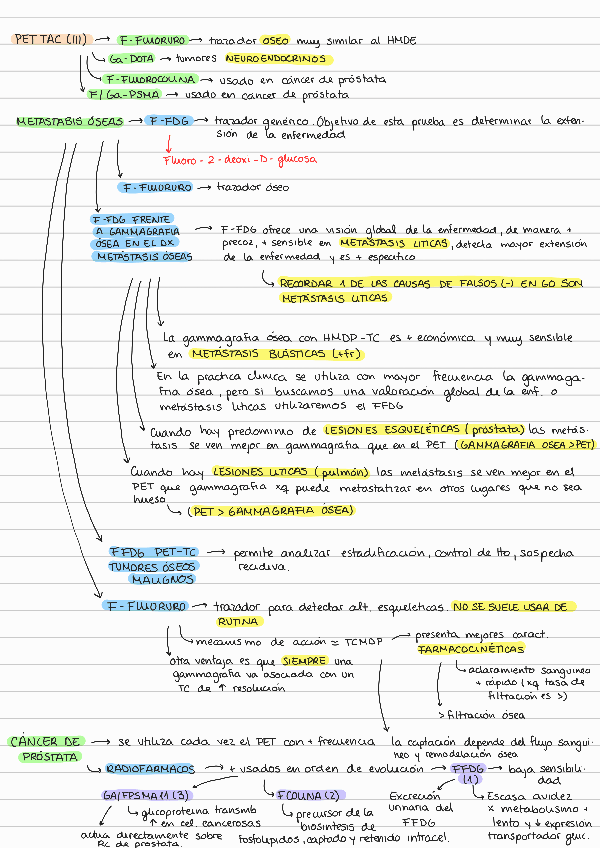 PET TAC (III) → F-FLUORURO → trazador ÓSEO muy similar al HMDE
Ga-DOTA → tumores NEUROENDOCRINOS
F-FLUOROCOLINA → usado en cáncer de próstata
F/Ga-PSMA → usado en cáncer de próstata
METÁSTASIS ÓSEAS → F-FDG → trazador genérico. Objetivo de esta prueba es determinar la exten-
sión de la enfermedad
Fluoro-2-deoxi-D-glucosa
F-FLUORURO → trazador óseo
F-FDG FRENTE
A GAMMAGRAFIA
ÓSEA EN EL DX
METÁSTASIS ÓSEAS
→ F-FDG ofrece una visión global de la enfermedad, de manera +
precoz, + sensible en METÁSTASIS LITICAS, detecta mayor extensión
de la enfermedad y es + específico
RECORDAR 1 DE LAS CAUSAS DE FALSOS (-) EN GO SON
METÁSTASIS LITICAS
La gammagrafia ósea con HMDP-TC es + económica y muy sensible
en METÁSTASIS BLÁSTICAS (+fr)
En la practica clínica se utiliza con mayor frecuencia la gammagra-
fia ósea, pero si buscamos una valoración global de la enf. o
metástasis líticas utilizaremos el FFDG
Cuando hay predominio de LESIONES ESQUELÉTICAS (próstata) las metás-
tasis se ven mejor en gammagrafia que en el PET (GAMMAGRAFIA OSEA>PET)
Cuando hay LESIONES LITICAS (pulmón) las metástasis se ven mejor en el
PET que gammagrafia xq puede metastatizar en otros lugares que no sea
hueso
(PET > GAMMAGRAFIA ÓSEA)
FFDG PET-TC
TUMORES ÓSEOS
MALIGNOS
→ permite analizar estadificación, control de tto, sospecha
recidiva.
F-FLUORURO → trazador para detectar alt. esqueleticas. NO SE SUELE USAR DE
RUTINA
mecanismo de acción = TCMDP → presenta mejores caract.
FARMACOCINÉTICAS
otra ventaja es que SIEMPRE una
gammagrafia va asociada con un
TC de ↑ resolución
aclaramiento sanguineo
+ rápido (xq tasa de
filtración es >)
> filtración ósea
la captación depende del flujo sangui-
neo y remodelación ósea
CÁNCER DE
PRÓSTATA
→ se utiliza cada vez el PET con + frecuencia
RADIOFARMACOS → + usados en orden de evolución → FFDG
(1)
→ baja sensibili-
dad
Excreción
urinaria del
FFDG
Escasa avidez
x metabolismo +
lento y ↓ expresión
transportador gluc.
FCOLINA (2)
precursor de la
biosintesis de
fosfolipidos, captado y retenido intracel.
GA/FPSMA11 (3)
glicoproteina transmb
↑ en cel. cancerosas
actúa directamente sobre
Rc de próstata.